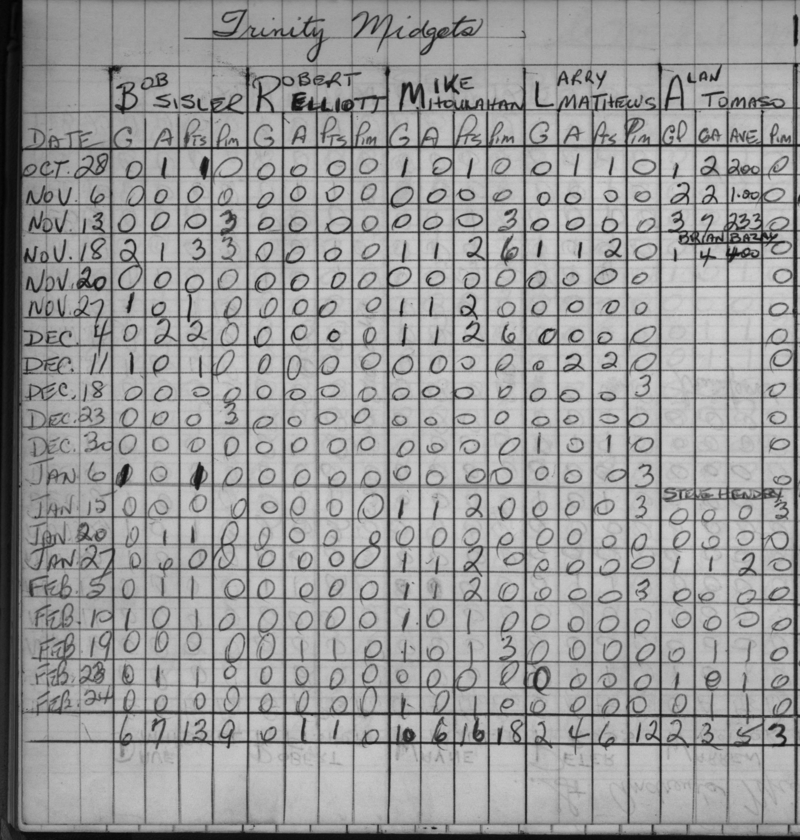 Trinity Midgets
BOB SISLER ROBERT ELLIOTT MIKE HOULAHAN LARRY MATHEWS ALAN TOMASO
DATE G A PTS PIM G A PTS PIM G A PTS PIM G A PTS PIM GP GA AVE. PIM
OCT. 28 0 1 1 0 0 0 0 0 1 0 1 0 0 1 1 0 1 2 2.00 0
NOV. 6 0 0 0 0 0 0 0 0 0 0 0 0 0 0 0 0 2 2 1.00 0
NOV. 13 0 0 0 3 0 0 0 0 0 0 0 3 0 0 0 0 3 7 233 0
BRIAN BAZAY
NOV. 18 2 1 3 3 0 0 0 0 1 1 2 6 1 1 2 0 1 4 400 0
NOV. 20 0 0 0 0 0 0 0 0 0 0 0 0 0 0 0 0 0
NOV. 27 1 0 1 0 0 0 0 0 1 1 2 0 0 0 0 0 0
DEC. 4 0 2 2 0 0 0 0 0 1 1 2 6 0 0 0 0 0
DEC. 11 1 0 1 0 0 0 0 0 0 0 0 0 0 2 2 0 0
DEC. 18 0 0 0 0 0 0 0 0 0 0 0 0 0 0 0 3 0
DEC. 23 0 0 0 3 0 0 0 0 0 0 0 0 0 0 0 0 0
DEC. 30 0 0 0 0 0 0 0 0 0 0 0 0 1 0 1 0 0
JAN 6 1 0 1 0 0 0 0 0 0 0 0 0 0 0 0 3 0
STEVE HENDRY
JAN 15 0 0 0 0 0 0 0 0 1 1 2 0 0 0 0 3 0 0 0 3
JAN. 20 0 1 1 0 0 0 0 0 0 0 0 0 0 0 0 0 0 0 0 0
JAN. 27 0 0 0 0 0 0 0 0 1 1 2 0 0 0 0 0 1 1 2 0
FEB. 5 0 1 1 0 0 0 0 0 1 1 2 0 0 0 0 3 0 0 0 0
FEB. 10 1 0 1 0 0 0 0 0 1 0 1 0 0 0 0 0 0 0 0 0
FEB. 19 0 0 0 0 0 1 1 0 1 0 1 3 0 0 0 0 0 1 1 0
FEB. 23 0 1 1 0 0 0 0 0 0 0 0 0 0 0 0 0 1 0 1 0
FEB. 24 0 0 0 0 0 0 0 0 1 0 1 0 0 0 0 0 0 1 1 0
6 7 13 9 0 1 1 0 10 6 16 18 2 4 6 12 2 3 5 3